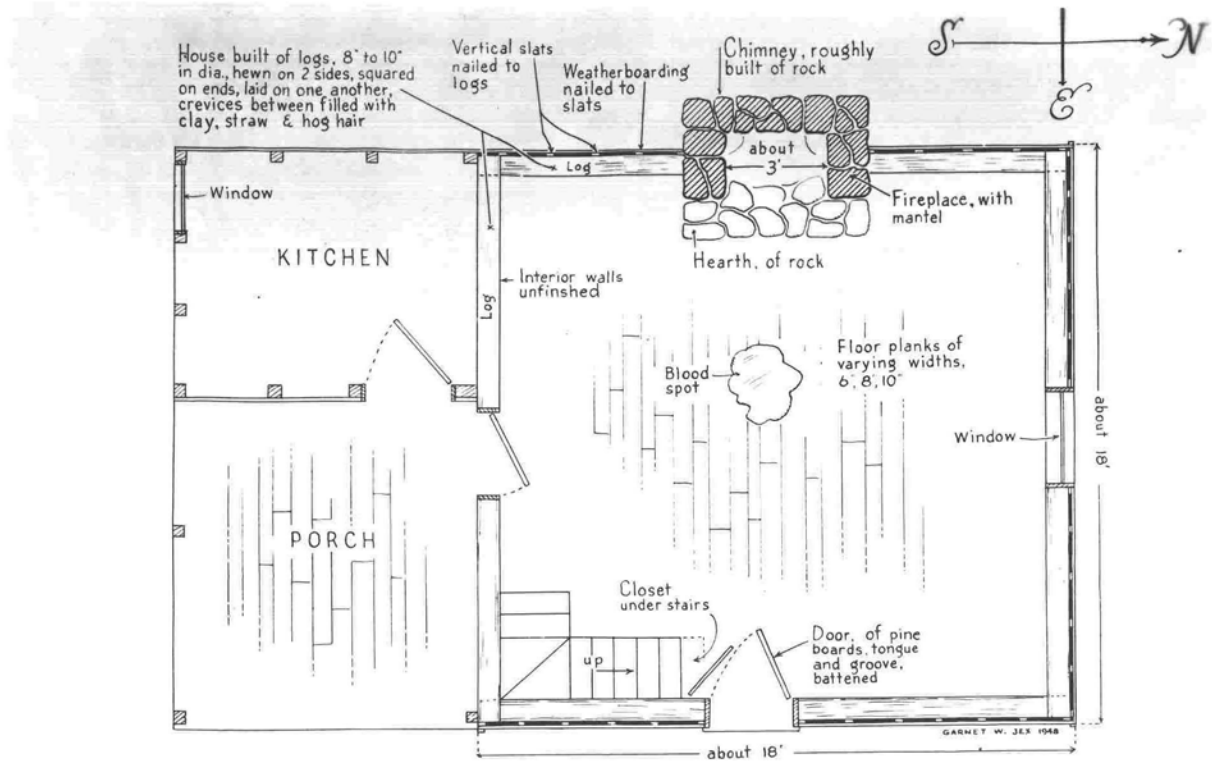 S
N
E
House built of logs, 8" to 10"
in dia., hewn on 2 sides, squared
on ends, laid on one another,
crevices between filled with
clay, straw & hog hair
Vertical slats
nailed to
logs
Weatherboarding
nailed to
slats
Chimney, roughly
built of rock
Log
about
3'
Fireplace, with
mantel
Hearth, of rock
Window
KITCHEN
Log
Interior walls
unfinshed
Blood
spot
Floor planks of
varying widths,
6", 8", 10"
Window
about 18'
PORCH
Closet
under stairs
up
Door, of pine
boards, tongue
and groove,
battened
GARNET W. JEX 1948
about 18'